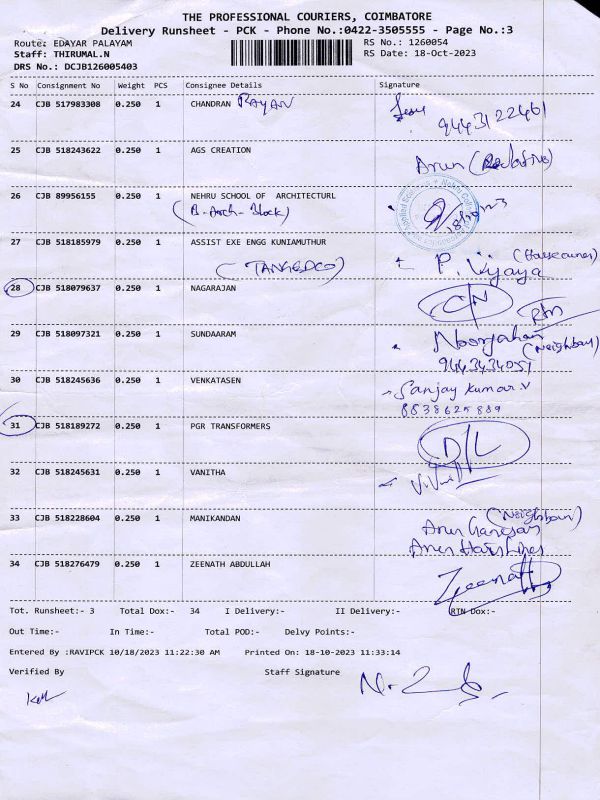 THE PROFESSIONAL COURIERS, COIMBATORE
Delivery Runsheet - PCK - Phone No.:0422-3505555 - Page No.:3
Route: EDAYAR PALAYAM RS No.: 1260054
Staff: THIRUMAL.N RS Date: 18-Oct-2023
DRS No.: DCJB126005403
S No Consignment No Weight PCS Consignee Details Signature
24 CJB 517983308 0.250 1 CHANDRAN RAYAN
9443122461
25 CJB 518243622 0.250 1 AGS CREATION
Arun (Relative)
26 CJB 89956155 0.250 1 NEHRU SCHOOL OF ARCHITECTURL
(B-Arch-Block)
27 CJB 518185979 0.250 1 ASSIST EXE ENGG KUNIAMUTHUR
(TANGEDCO) P. Vijaya (House owner)
28 CJB 518079637 0.250 1 NAGARAJAN
C/N RTN
29 CJB 518097321 0.250 1 SUNDAARAM Noorjahan
(Neighbour)
9443434051
30 CJB 518245636 0.250 1 VENKATASEN Sanjay Kumar.V
8838625889
31 CJB 518189272 0.250 1 PGR TRANSFORMERS
D/L
32 CJB 518245631 0.250 1 VANITHA
33 CJB 518228604 0.250 1 MANIKANDAN (Neighbour)
Arun Ganesan
34 CJB 518276479 0.250 1 ZEENATH ABDULLAH
Zeenath
Tot. Runsheet:- 3 Total Dox:- 34 I Delivery:- II Delivery:- RTN Dox:-
Out Time:- In Time:- Total POD:- Delvy Points:-
Entered By :RAVIPCK 10/18/2023 11:22:30 AM Printed On: 18-10-2023 11:33:14
Verified By Staff Signature